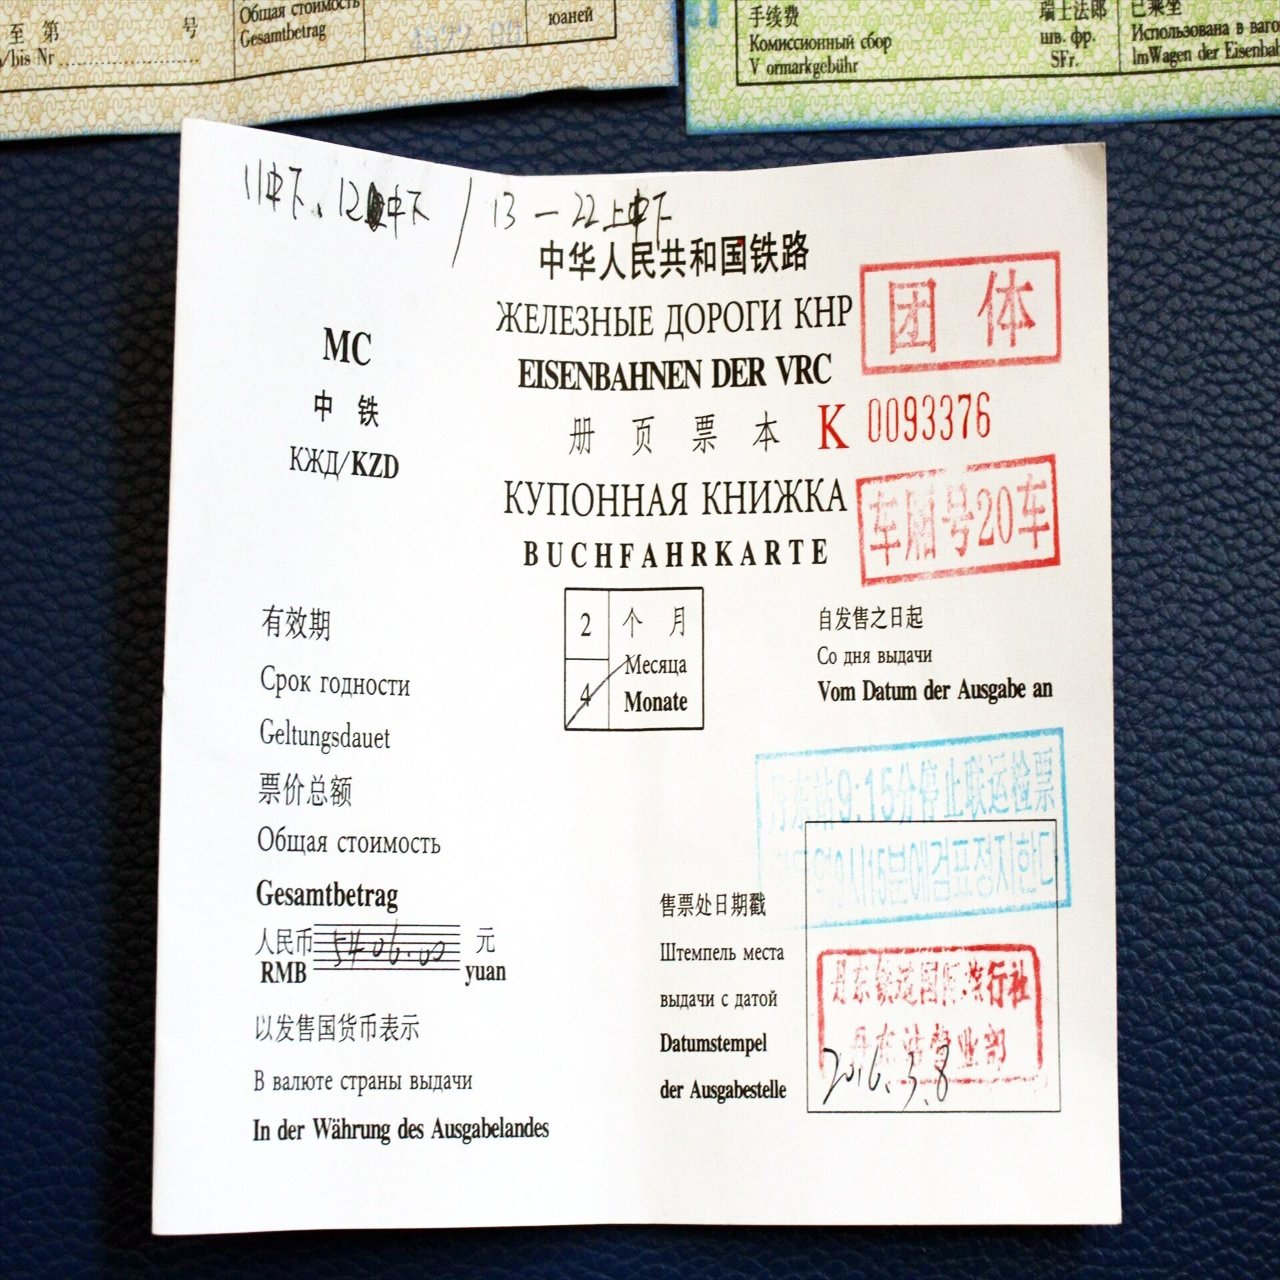 至 第 号
/bis Nr
Общая стоимость
Gesamtbetrag
юаней
手续费
Комиссионный сбор
V ormarkgebühr
瑞士法郎
шв. фр.
SFr.
已乘坐
Использована в ваго
lmWagen der Eisenbah
11中下、12中下 / 13 — 22上中下
中华人民共和国铁路
ЖЕЛЕЗНЫЕ ДОРОГИ КНР
EISENBAHNEN DER VRC
团 体
MC
中 铁
КЖД/KZD
册 页 票 本 K 0093376
КУПОННАЯ КНИЖКА
BUCHFAHRKARTE
车厢号20车
有效期
Срок годности
Geltungsdauet
2 个 月
4 Месяца
Monate
自发售之日起
Со дня выдачи
Vom Datum der Ausgabe an
票价总额
Общая стоимость
Gesamtbetrag
人民币 5406.00 元
RMB yuan
以发售国货币表示
В валюте страны выдачи
In der Währung des Ausgabelandes
丹东站9:15分停止联运检票
9시15분에검표정지한다
售票处日期戳
Штемпель места
выдачи с датой
Datumstempel
der Ausgabestelle
丹东铁道国际旅行社
丹东站营业部
2016.3.8